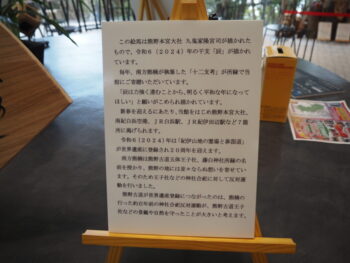 この絵馬は熊野本宮大社 九鬼家隆宮司が描かれた
もので、令和6(2024)年の干支「辰」が描かれ
ています。
毎年、南方熊楠が執筆した「十二支考」が所縁で当館
にご奉納いただいています。
「辰は力強く登ることから、明るく平和な年になって
ほしい」と願いがこめられ描かれています。
新春を迎えるにあたり、当館をはじめ熊野本宮大社、
南紀白浜空港、JR白浜駅、JR紀伊田辺駅など7箇
所に掲げられます。
令和6(2024)年は「紀伊山地の霊場と参詣道」
が世界遺産に登録され20周年を迎えます。
南方熊楠は熊野古道五体王子社、藤白神社所縁の名
前を授かり、熊野の地には並々ならぬ想いを寄せてい
ます。そのため王子社などの神社合祀に対して反対運
動を行いました。
熊野古道が世界遺産登録につながったのは、熊楠の
行った約百年前の神社合祀反対運動が、熊野古道王子
社などの景観や自然を守ったことが大きいと考えます。